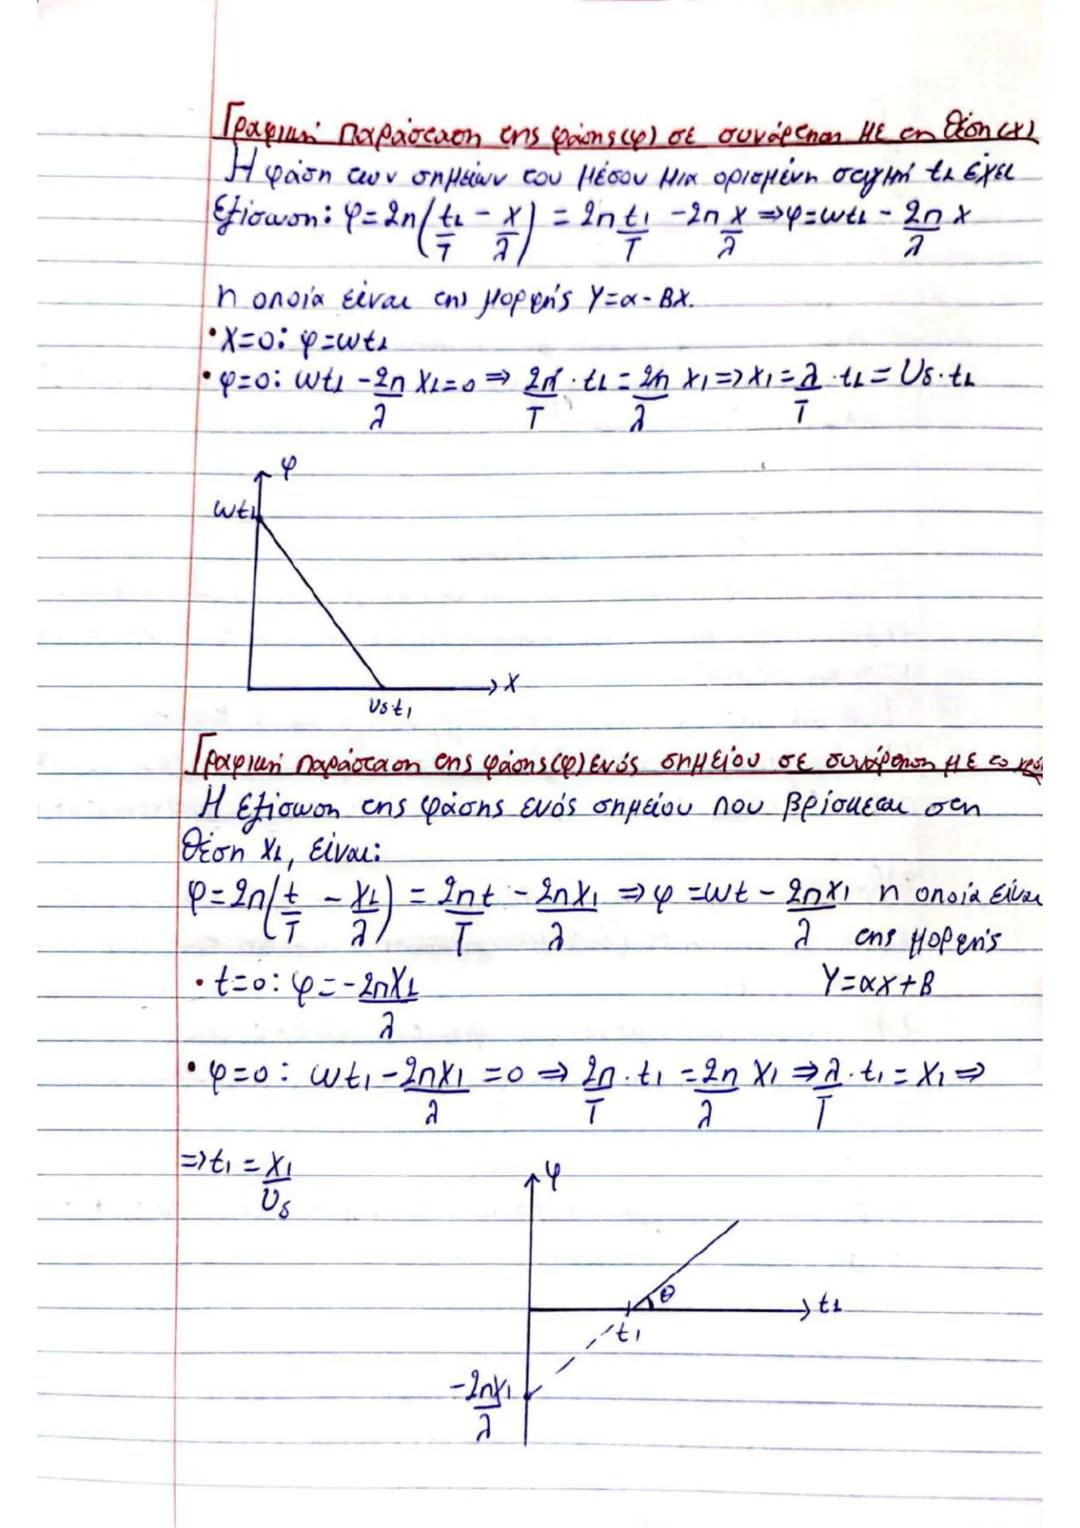 Γραφική Παράσταση της φάσης (φ) σε συνάρτηση με τη θέση (x)
Η φάση των σημείων του μέσου μια ορισμένη στιγμή t₁ έχει
εξίσωση: φ=2π(t₁/T - x/λ) = 2πt₁/T - 2πx/λ ⇒ φ=ωt₁ - 2π/λ x
η οποία είναι της μορφής Y=α-Βx.
•X=0: φ=ωt₁
•φ=0: ωt₁ - 2π/λ X₁=0 ⇒ 2π/T · t₁ = 2π/λ X₁ ⇒ X₁ = λ/T · t₁ = Uδ·t₁
φ
ωt₁
X
Uδt₁
Γραφική παράσταση της φάσης (φ) ενός σημείου σε συνάρτηση με το
Η εξίσωση της φάσης ενός σημείου που βρίσκεται στη
θέση X₁, είναι:
φ=2π(t/T - X₁/λ) = 2πt/T - 2πX₁/λ ⇒ φ=ωt - 2πX₁/λ η οποία είναι
της μορφής
Y=αx+Β
•t=0: φ=-2πX₁/λ
•φ=0: ωt₁ - 2πX₁/λ = 0 ⇒ 2π/T · t₁ = 2π/λ X₁ ⇒ λ/T · t₁ = X₁ ⇒
⇒ t₁ = X₁/Uδ
φ
θ
t₁
t₁
-2πX₁/λ